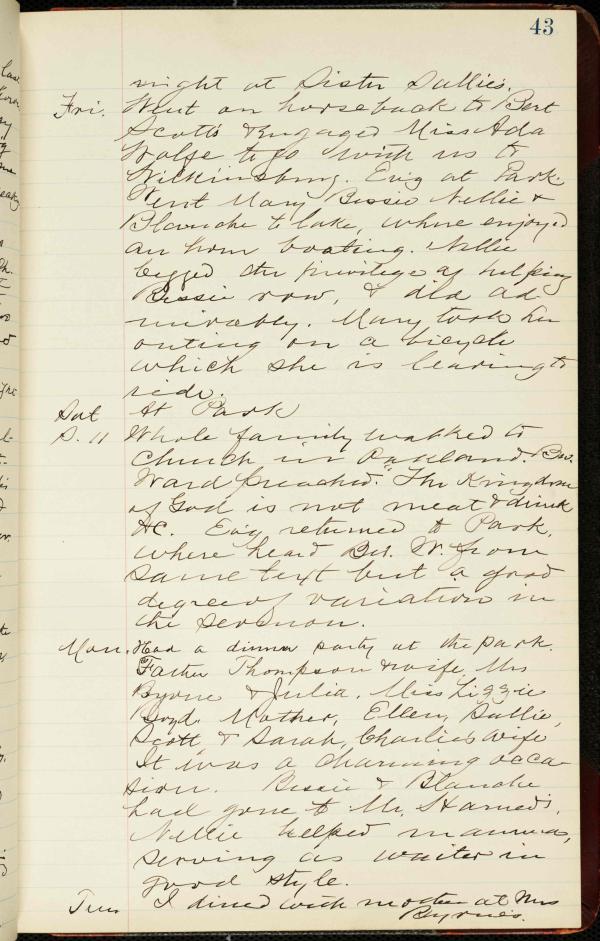 43
night at Sister Sallie's.
Fri. Went on horseback to Bert
Scott's & Engaged Miss Ada
Wolfe to go with us to
Wilkinsburg. Ev'g at Park.
Went Mary Bessie Nellie &
Blanche to lake, where enjoyed
an hour boating. Nellie
begged the privilege of helping
Bessie row, & did ad
mirably. Mary took her
outing on a bicycle
which she is learning to
ride.
Sat At Park
S. 11 Whole family walked to
Church in Oakland. Bro.
Ward preached. "The Kingdom
of God is not meat & drink
&C. Ev'g returned to Park,
where heard Bro. W. from
same text but a good
degree of variation in
the sermon.
Mon. Had a dinner party at the park.
Father Thompson & wife, Mrs
Byrne & Julia, Miss Lizzie
Boyd Mother, Ellen, Sallie,
Scott & Sarah, Charlie's wife
It was a charming occa-
sion. Bessie & Blanche
had gone to Mr.
Nellie helped mamma,
serving as waiter in
good style.
Tues I dined with mother at Mrs
Byrne's.